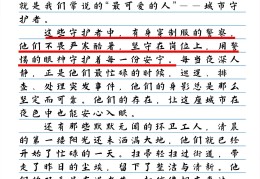 就是我们常说的“最可爱的人”——城市守
护者。
这些守护者中,有身穿制服的警察,
他们不畏严寒酷暑,坚守在岗位上,用警
惕的眼神守护着每一份安宁。每当夜深人
静,正是他们最忙碌的时候,巡逻、排
查、处理突发事件,他们的身影总是那么
坚定而可靠。他们的存在,让这座城市在
夜色中也能安心入眠。
还有那些默默无闻的环卫工人。清晨
的第一缕阳光还未洒向大地,他们就已经
开始了忙碌的一天。扫帚轻轻扫过街道,带
走了昨日的尘埃,留下了整洁与清新。他